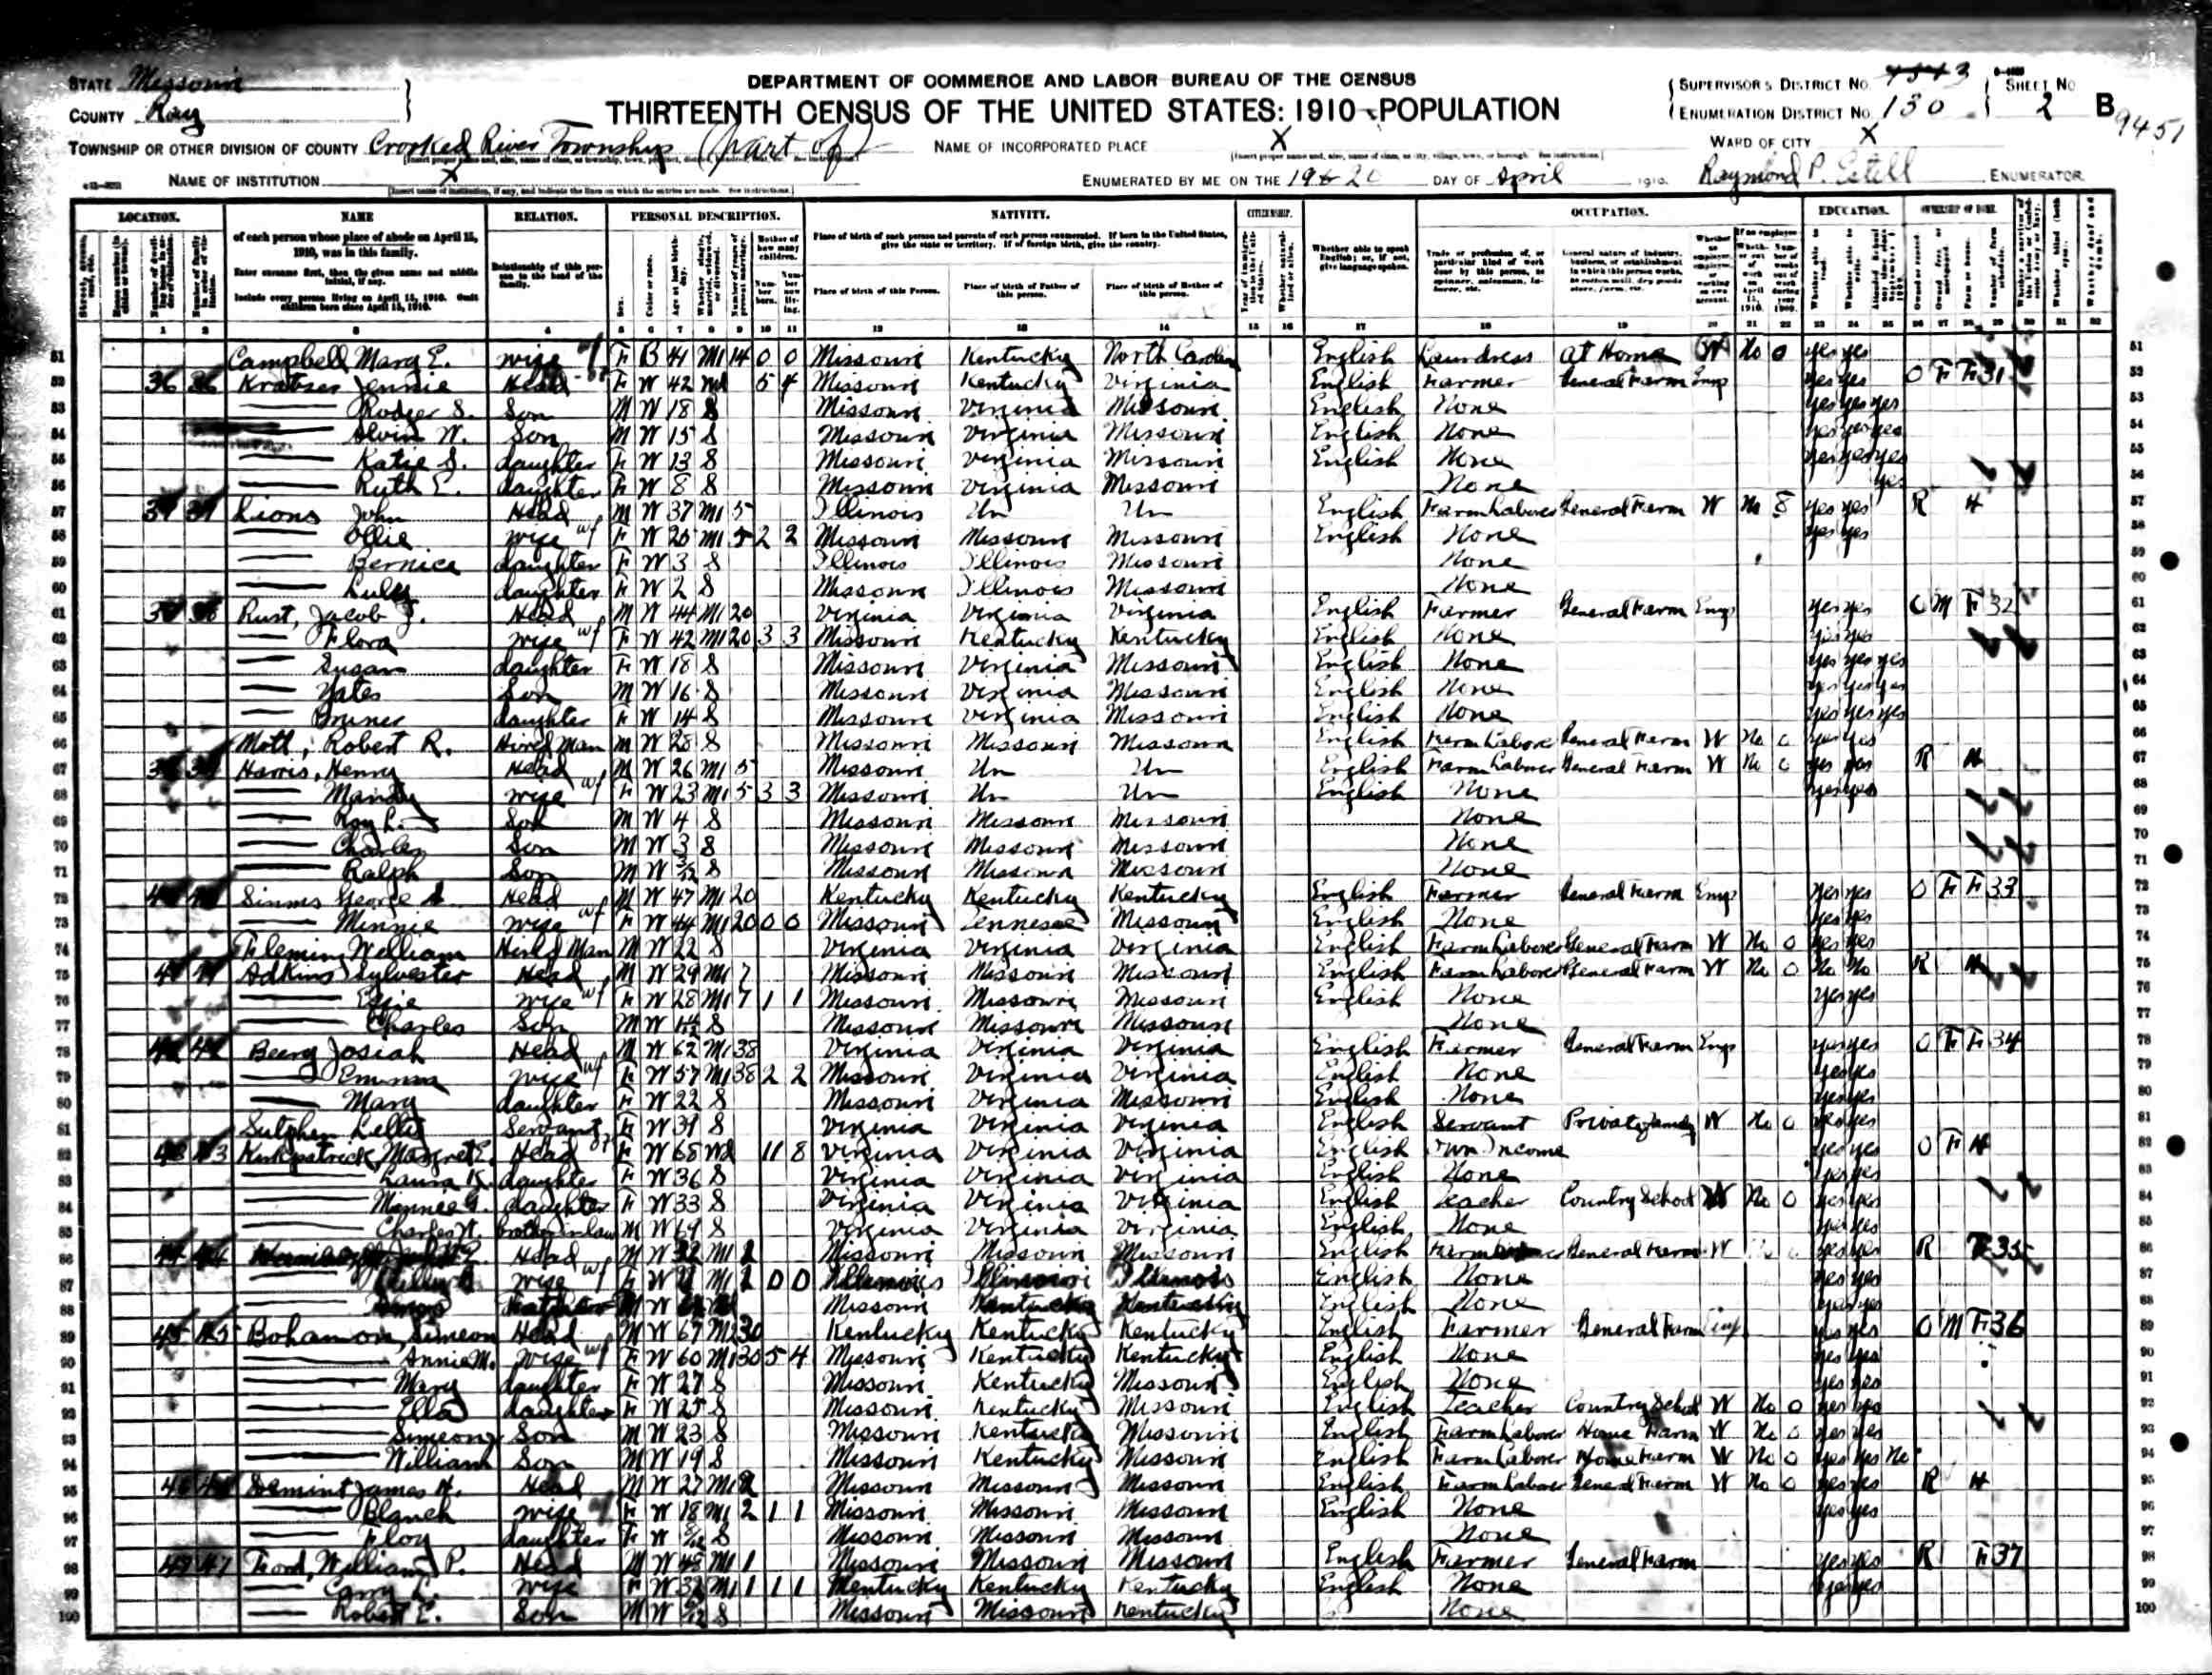 STATE Missouri
COUNTY Ray
DEPARTMENT OF COMMERCE AND LABOR BUREAU OF THE CENSUS
THIRTEENTH CENSUS OF THE UNITED STATES: 1910 POPULATION
SUPERVISOR'S DISTRICT No. 3
ENUMERATION DISTRICT No. 130
SHEET No 2 B
9451
TOWNSHIP OR OTHER DIVISION OF COUNTY Crooked River Township (part of)
NAME OF INCORPORATED PLACE X
WARD OF CITY X
NAME OF INSTITUTION X
ENUMERATED BY ME ON THE 19 & 20 DAY OF April 1910. Raymond P. Estell ENUMERATOR
LOCATION. NAME RELATION. PERSONAL DESCRIPTION. NATIVITY. CITIZENSHIP. OCCUPATION. EDUCATION. OWNERSHIP OF HOME.
of each person whose place of abode on April 15, 1910, was in this family.
Enter surname first, then the given name and middle initial, if any.
Include every person living on April 15, 1910. Omit children born since April 15, 1910.
Relationship of this person to the head of the family.
Place of birth of each person and parents of each person enumerated. If born in the United States, give the state or territory. If of foreign birth, give the country.
Place of birth of this Person. Place of birth of Father of this person. Place of birth of Mother of this person.
Whether able to speak English; or, if not, give language spoken.
1 2 3 4 5 6 7 8 9 10 11 12 13 14 15 16 17 18 19 20 21 22 23 24 25 26 27 28 29 30 31 32
51 Campbell Mary E. wife F B 41 M1 14 0 0 Missouri Kentucky North Carolina English Laundress At Home W No 0 yes yes 51
52 36 36 Kratzer Jennie Head F W 42 Wd 5 4 Missouri Kentucky Virginia English Farmer General Farm Emp yes yes O F F 31 52
53 Rodger S. Son M W 18 S Missouri Virginia Missouri English None yes yes yes 53
54 Alvin W. Son M W 15 S Missouri Virginia Missouri English None yes yes yes 54
55 Katie S. daughter F W 13 S Missouri Virginia Missouri English None yes yes yes 55
56 Ruth E. daughter F W 8 S Missouri Virginia Missouri None yes 56
57 37 37 Lions John Head M W 37 M1 5 Illinois Un Un English Farm Laborer General Farm W No 8 yes yes R H 57
58 Ollie wife F W 25 M1 5 2 2 Missouri Missouri Missouri English None yes yes 58
59 Bernice daughter F W 3 S Illinois Illinois Missouri None 59
60 Lully daughter F W 2 S Missouri Illinois Missouri None 60
61 Rust, Jacob Head M W 44 M1 20 Virginia Virginia Virginia English Farmer General Farm Emp yes yes O M F 32 61
62 Flora wife F W 42 M1 20 3 3 Missouri Kentucky Kentucky English None yes yes 62
63 Susan daughter F W 18 S Missouri Virginia Missouri English None yes yes yes 63
64 Yates Son M W 16 S Missouri Virginia Missouri English None yes yes yes 64
65 Bruner daughter F W 14 S Missouri Virginia Missouri English None yes yes yes 65
66 Mott, Robert R. Hired Man M W 28 S Missouri Missouri Missouri English Farm Laborer General Farm W No 0 yes yes 66
67 Harris, Henry Head M W 26 M1 5 Missouri Un Un English Farm Laborer General Farm W No 0 yes yes R H 67
68 Mandy wife F W 23 M1 5 3 3 Missouri Un Un English None yes yes 68
69 Roy L. Son M W 4 S Missouri Missouri Missouri None 69
70 Charles Son M W 3 S Missouri Missouri Missouri None 70
71 Ralph Son M W S Missouri Missouri Missouri None 71
72 Simms George Head M W 47 M1 20 Kentucky Kentucky Kentucky English Farmer General Farm Emp yes yes O F F 33 72
73 Minnie wife F W 44 M1 20 0 0 Missouri Tennesee Missouri English None yes yes 73
74 Fleming William Hired Man M W 22 S Virginia Virginia Virginia English Farm Laborer General Farm W No 0 yes yes 74
75 Adkins Sylvester Head M W 29 M1 7 Missouri Missouri Missouri English Farm Laborer General Farm W No 0 No No R H 75
76 wife F W 28 M1 7 1 1 Missouri Missouri Missouri English None yes yes 76
77 Charles Son M W S Missouri Missouri Missouri None 77
78 42 42 Beery Josiah Head M W 62 M1 38 Virginia Virginia Virginia English Farmer General Farm Emp yes yes O F F 34 78
79 Emma wife F W 57 M1 38 2 2 Missouri Virginia Virginia English None yes yes 79
80 Mary daughter F W 22 S Missouri Virginia Missouri English None yes yes 80
81 Sutphen Servant F W S Virginia Virginia Virginia English Servant Private family W No 0 yes yes 81
82 43 43 Kirkpatrick, Margret E. Head F W 68 Wd 11 8 Virginia Virginia Virginia English Own Income yes yes O F H 82
83 Laura K. daughter F W 36 S Virginia Virginia Virginia English None yes yes 83
84 Minnie G. daughter F W 33 S Virginia Virginia Virginia English Teacher Country School W No 0 yes yes 84
85 Charles W. brother in law M W 69 S Virginia Virginia Virginia English None yes yes 85
86 44 44 Head M W 32 M1 2 Missouri Missouri Missouri English General Farm W yes yes R F 35 86
87 wife F W M1 2 0 0 Illinois Illinois Illinois English None yes yes 87
88 M W Missouri Kentucky Kentucky English None yes yes 88
89 45 45 Bohannon, Simeon Head M W 67 M2 30 Kentucky Kentucky Kentucky English Farmer General Farm Emp yes yes O M F 36 89
90 Annie M. wife F W 60 M1 30 5 4 Missouri Kentucky Kentucky English None yes yes 90
91 Mary daughter F W 27 S Missouri Kentucky Missouri English None yes yes 91
92 Ella daughter F W 25 S Missouri Kentucky Missouri English Teacher Country School W No 0 yes yes 92
93 Simeon Son M W 23 S Missouri Kentucky Missouri English Farm Laborer Home Farm W No 0 yes yes 93
94 William Son M W 19 S Missouri Kentucky Missouri English Farm Laborer Home Farm W No 0 yes yes No 94
95 Demint James H. Head M W 27 M1 2 Missouri Missouri Missouri English Farm Laborer General Farm W No 0 yes yes R H 95
96 Blanch wife F W 18 M1 2 1 1 Missouri Missouri Missouri English None yes yes 96
97 Floy daughter F W S Missouri Missouri Missouri None 97
98 47 47 Ford, William P. Head M W 48 M1 1 Missouri Missouri Missouri English Farmer General Farm yes yes R F 37 98
99 wife F W M1 1 1 1 Kentucky Kentucky Kentucky English None yes yes 99
100 Robert E. Son M W S Missouri Missouri Kentucky None 100